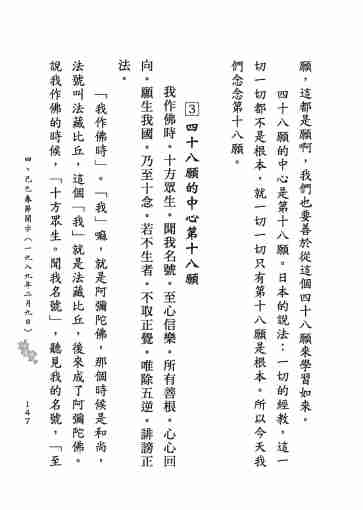 願，這都是願啊，我們也要善於從這個四十八願來學習如來。
四十八願的中心是第十八願。日本的說法：一切的經教，這一
切一切都不是根本，就一切一切只有第十八願是根本。所以今天我
們念念第十八願。
3 四十八願的中心第十八願
我作佛時。十方眾生。聞我名號。至心信樂。所有善根。心心回
向。願生我國。乃至十念。若不生者。不取正覺。唯除五逆。誹謗正
法。
「我作佛時」。「我」嘛，就是阿彌陀佛，那個時候是和尚，
法號叫法藏比丘，這個「我」就是法藏比丘，後來成了阿彌陀佛。
說我作佛的時候，「十方眾生。聞我名號」，聽見我的名號，「至
四、己巳春節開示（一九八九年二月九日）
147